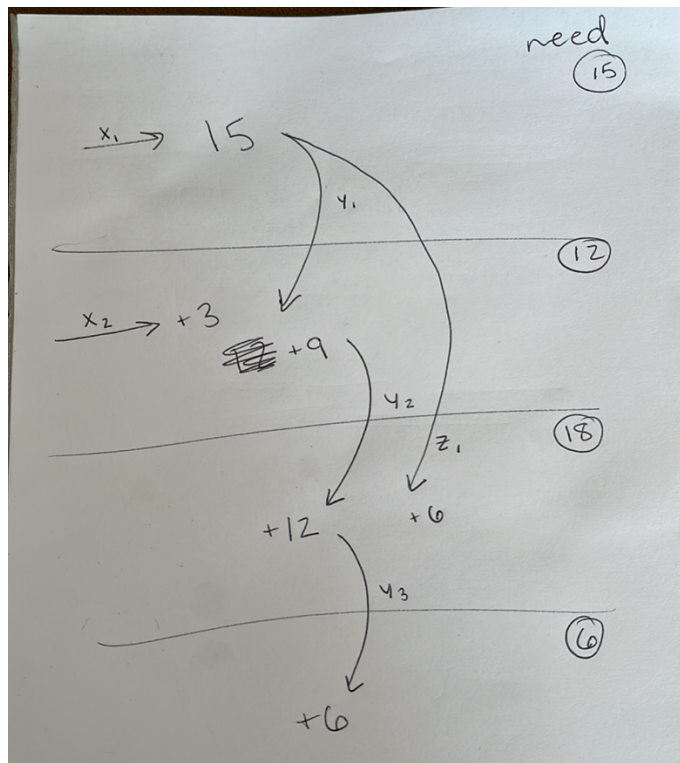 need
15
x₁ 15
y₁
12
x₂ +3
+9
y₂
18
z₁
+12 +6
y₃
6
+6